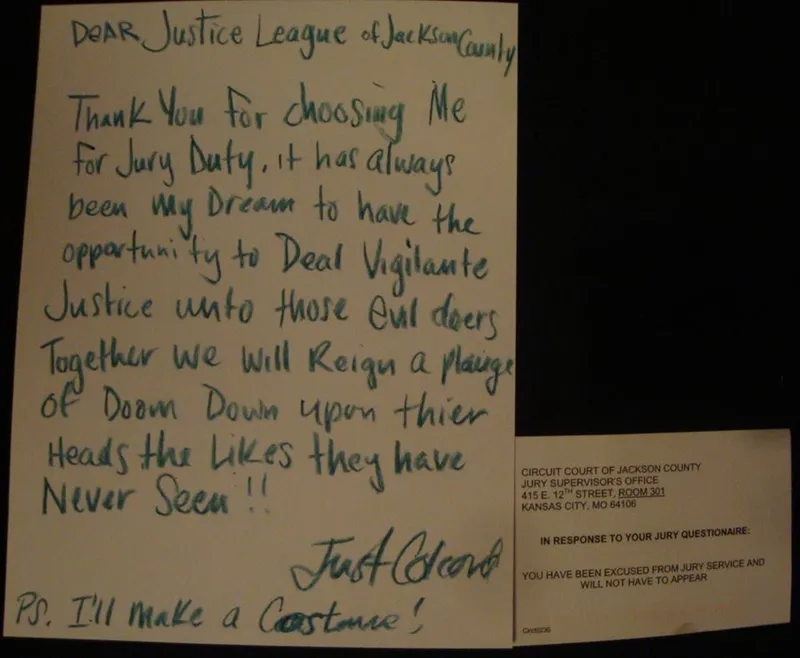 DEAR Justice League of Jackson County
Thank You For choosing Me
For Jury Duty. it has always
been My Dream to have the
opportunity to Deal Vigilante
Justice unto those evil doers
Together we will Reign a plauge
of Doom Down upon thier
Heads the Likes they have
Never Seen !!
Just
PS. I'll make a Costume!
CIRCUIT COURT OF JACKSON COUNTY
JURY SUPERVISOR'S OFFICE
415 E. 12TH STREET, ROOM 301
KANSAS CITY, MO 64106
IN RESPONSE TO YOUR JURY QUESTIONAIRE:
YOU HAVE BEEN EXCUSED FROM JURY SERVICE AND
WILL NOT HAVE TO APPEAR